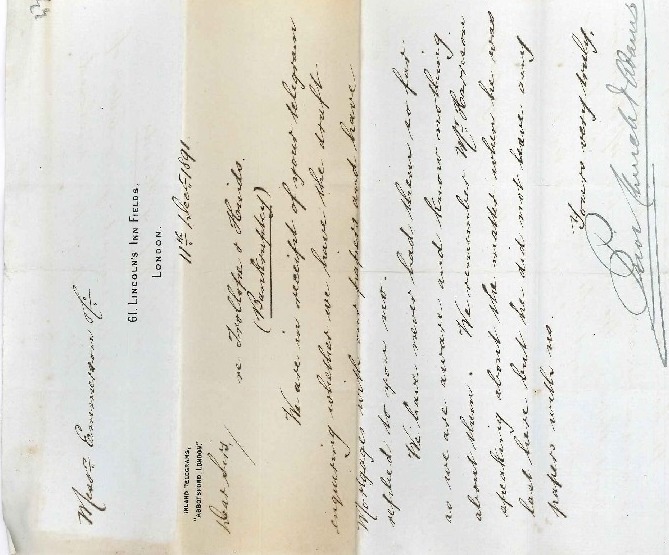 61. LINCOLN'S INN FIELDS,
LONDON.
11th Dec. 1891
INLAND TELEGRAMS,
"ABBOTSFORD LONDON"
Dear Sirs
re Trollope &
(Bankruptcy)
We are in receipt of your telegram
enquiring whether we have the draft
Mortgages with our papers and have
replied to you no.
We have never had them so far
as we are aware and know nothing
about them. We remember Mr
speaking about the matter when he was
last here but he did not leave any
papers with us.
Yours very truly,